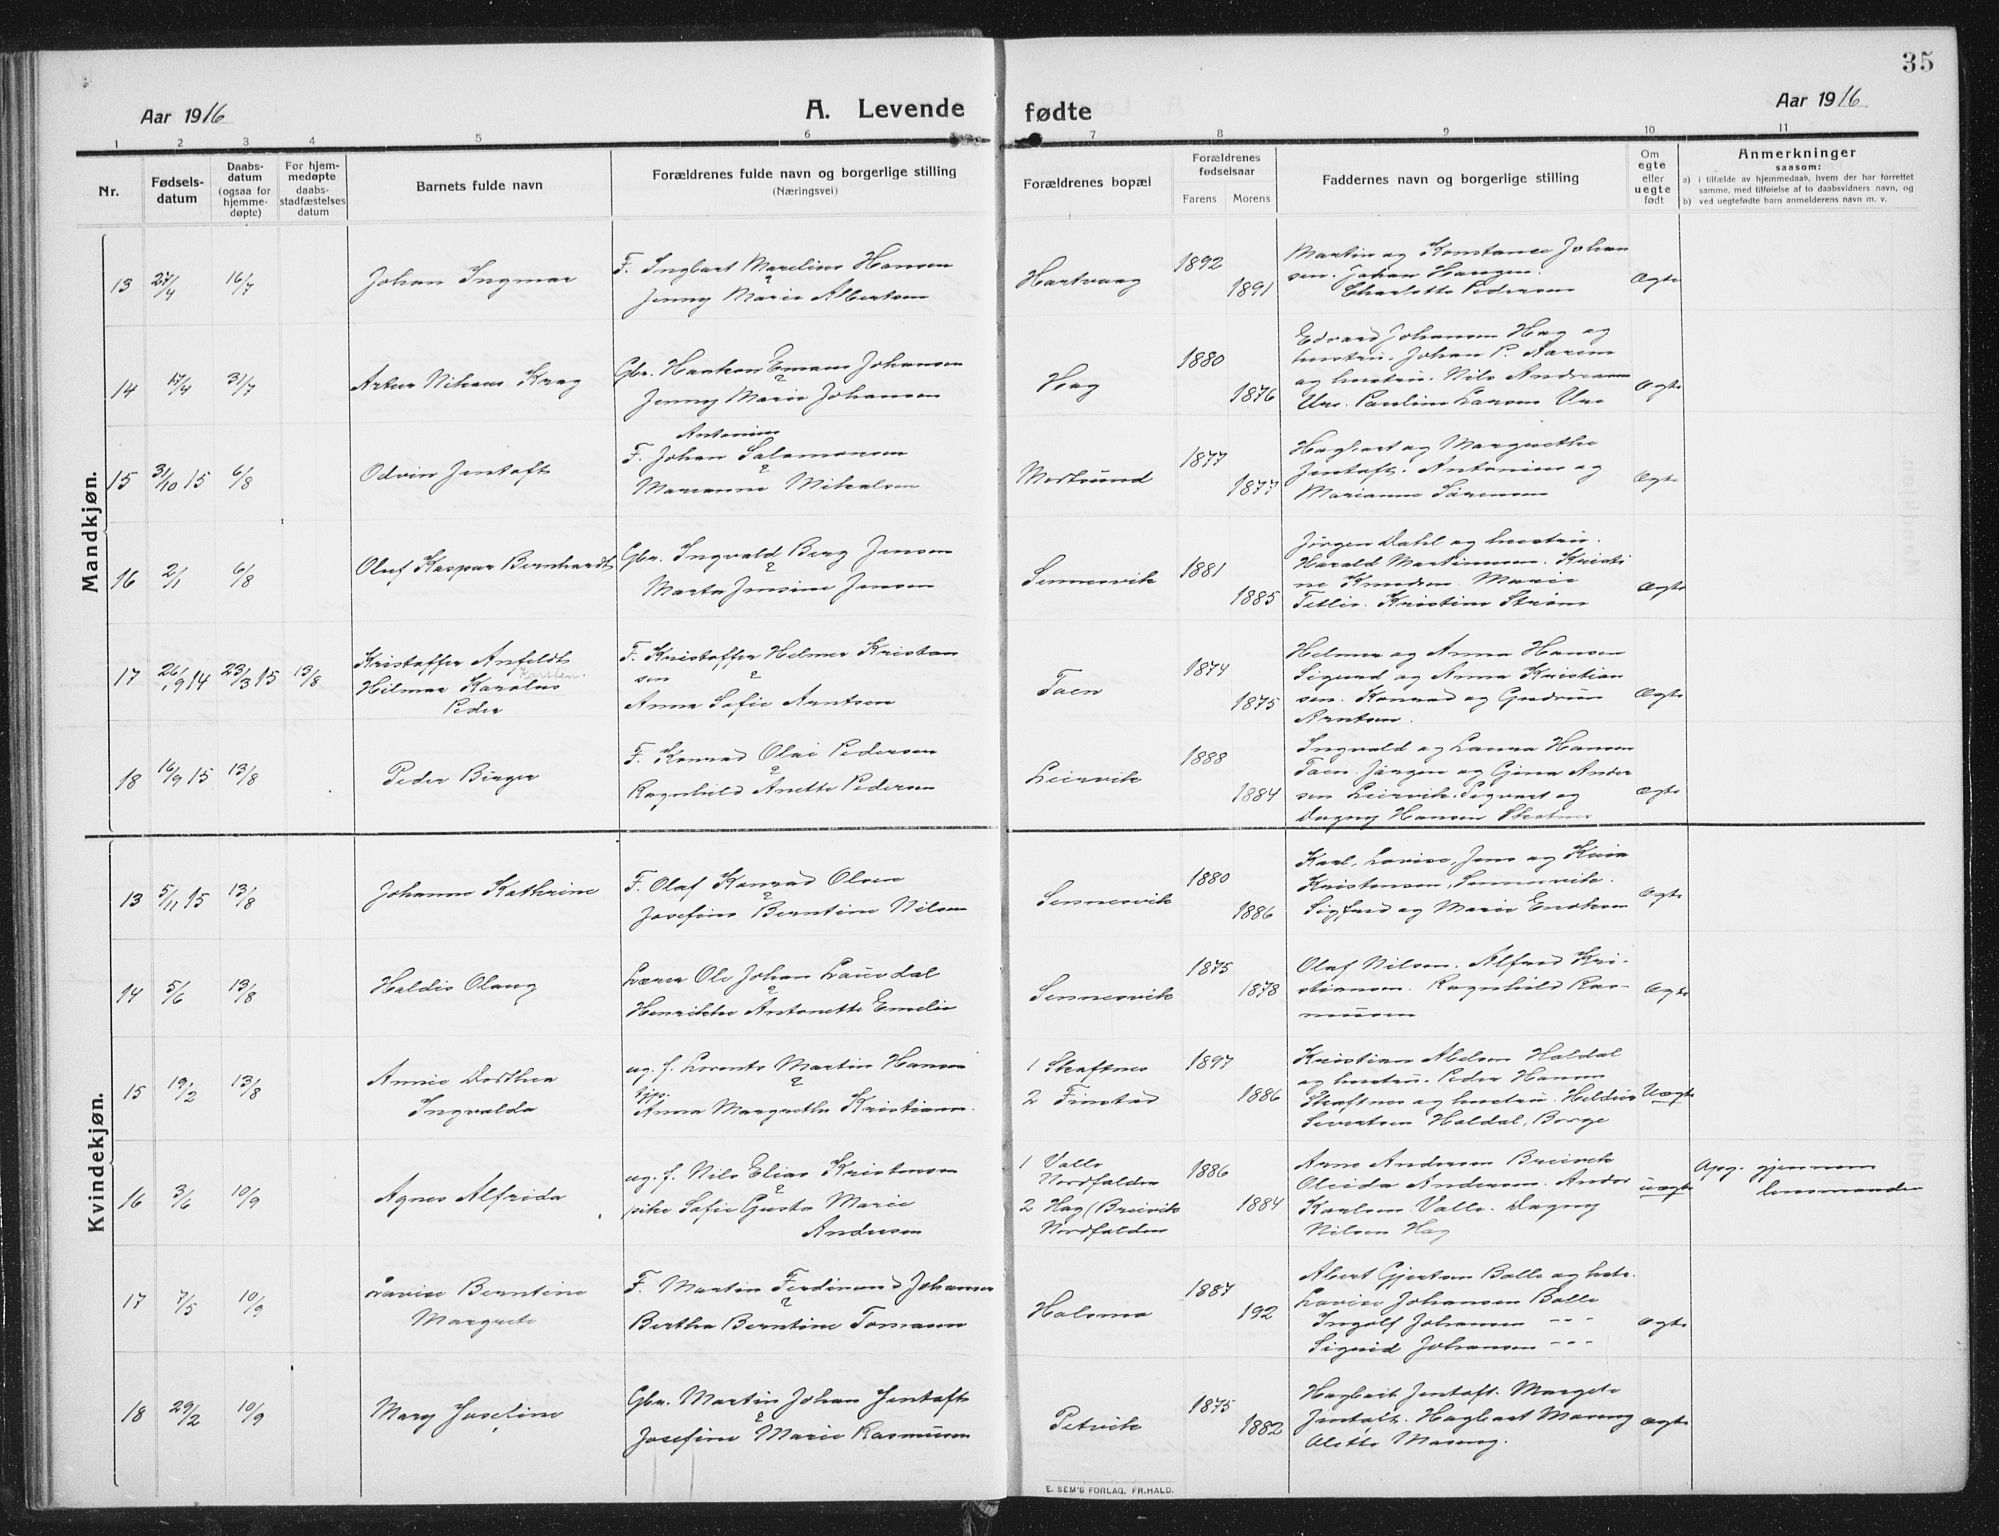 35
Aar 1916
A. Levende fødte
Aar 1916
1 2 3 4 5 6 7 8 9 10 11
Nr.
Fødsels-
datum
Daabs-
datum
(ogsaa for
hjemme-
døpte)
For hjem-
medøpte
daabs-
stadfæstelses
datum
Barnets fulde navn
Forældrenes fulde navn og borgerlige stilling
(Næringsvei)
Forældrenes bopæl
Forældrenes
fødselsaar
Farens Morens
Faddernes navn og borgerlige stilling
Om
egte
eller
uegte
født
Anmerkninger
saasom:
a) i tilfælde av hjemmedaab, hvem der har forrettet
samme, med tilføielse af to daabsvidners navn, og
b) ved uegtefødte barn anmelderens navn m. v.
Mandkjøn.
13 27/4 16/7
Johan Ingmar
F. Ingbart Marelius Hansen
Jenny Marie Albertsen
Hartvaag
1892
1891
Martin og Konstanse Johan
sen. Johan Haugen.
Charlotte Pedersen
Ægte
14 17/4 31/7
Artur Nikeus Krag
Gbr. Haakon Emaus Johansen
Jenny Marie Johansen
Hag
1880
1876
Edvard Johansen Hag og
hustru. Johan P. Aarens
og hustru. Nils Andreasen
Ure. Pauline Larsen Ure
Ægte
15 31/10 15 6/8
Odvin Jentoft
Antonius
F. Johan Salamonsen
Marianne Mikalsen
Mortsund
1877
1877
Hagbart og Margrethe
Jentoft. Antonius og
Marianne Sørensen
Ægte
16 2/1 6/8
Oluf Kaspar Bernhardt
Gbr. Ingvald Berg Jensen
Marta Jensine Jensen
Sennesvik
1881
1885
Jørgen Dahl og hustru.
Harald Martinussen. Kristi
ne Knudsen. Marie
Tetlie. Kristine Strøm
Ægte
17 26/9 14 23/3 15 13/8
Kristoffer Anfeldt
Karsten.
Hilmar Karolus
Peder
F. Kristoffer Helmer Kristian
sen
Anna Sofie Arntsen
Taen
1874
1875
Helmer og Anna Hansen
Sigurd og Anna Kristian
sen. Konrad og Gudrun
Arntsen.
Ægte
18 16/9 15 13/8
Peder Birger
F. Konrad Olai Pedersen
Ragnhild Anette Pedersen
Leirvik
1888
1884
Ingvald og Laura Hansen
Taen. Jørgen og Gjina Ander
sen Leirvik. Sigvart og
Dagny Hansen Skotnes
Ægte
Kvindekjøn.
13 5/11 15 13/8
Johanne Kathrine
F. Olaf Konrad Olsen
Josefine Berntine Nilsen
Sennesvik
1880
1886
Karl, Lovise, Jens og Kaia
Kristensen, Sennesvik.
Sigfred og Marie Eriksen
Ægte
14 5/6 13/8
Haldis Olaug
Lærer Ole Johan Lauvdal
Henrikke Antonette Emelie
Sennesvik
1875
1878
Olaf Nilsen. Alfred Kri-
stiansen. Ragnhild Ras-
mussen
Ægte
15 19/2 13/8
Annie Dorthea
Ingvalda
ug. f. Lorents Martin Hansen
tjp.
Anna Margrethe Kristians.
1 Skaftnes
2 Finstad
1897
1886
Kristian Abelsen Haldal
og hustru. Peder Hansen
Skaftnes og hustru. Heldur
Sivertsen Haldal, Borge
Uægte
16 3/6 10/9
Agnes Alfrida
ug. f. Nils Elias Kristensen
pike Sofie Gusta Marie
Andersen
1 Valle
Nordfolden
2 Hag (Breivik
Nordfolden
1886
1884
Arne Andersen Breivik
Oleida Andersen. Andor
Karlsen Valle. Dagny
Nilsen Hag
uægte
Opg. gjennem
lensmanden
17 7/5 10/9
Lavise Berntine
Margrete
F. Martin Ferdinand Johansen
Bertha Berntine Tomasen
Holsmo
1887
192
Albert Gjertsen Balle og hstr.
Lovise Johansen Balle
Ingolf Johansen " "
Sigrid Johansen " "
Ægte
18 29/2 10/9
Mary Joseline
Gbr. Martin Johan Jentoft
Josefine Marie Rasmussen
Petvik
1875
1882
Hagbart Jentoft. Margete
Jentoft. Hagbart Maseng
Olette Maseng.
Ægte
E. SEM'S FORLAG, FR.HALD.